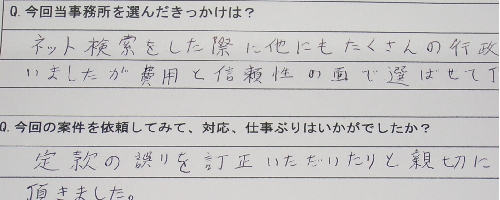 Q.今回当事務所を選んだきっかけは？
ネット検索をした際に他にもたくさんの行政
いましたが費用と信頼性の面で選ばせて
Q.今回の案件を依頼してみて、対応、仕事ぶりはいかがでしたか？
定款の誤りを訂正いただいたりと親切に
頂きました。